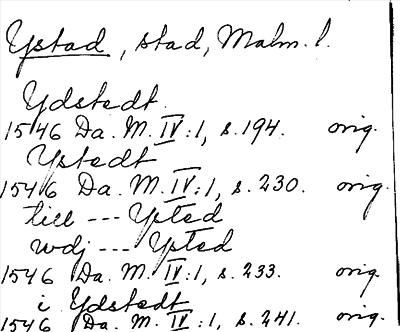 Ystad, stad, Malm. l.
Ydstedt
1546 Da. M. IV:1, s. 194. orig.
Ystedt
1546 Da. M. IV:1, s. 230. orig.
till --- Ysted
wdj --- Ysted
1546 Da. M. IV:1, s. 233. orig.
i Ydstedt
1546 Da. M. IV:1, s. 241. orig.